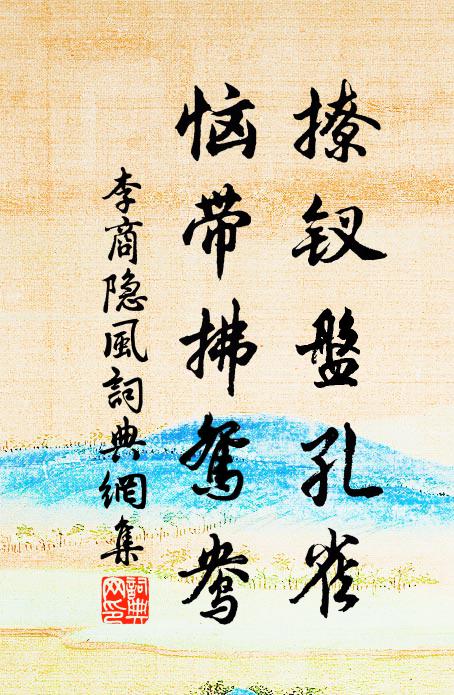 撩钗盤孔雀
恼带拂鴛鴦
李商隐風詞典網集
詞典